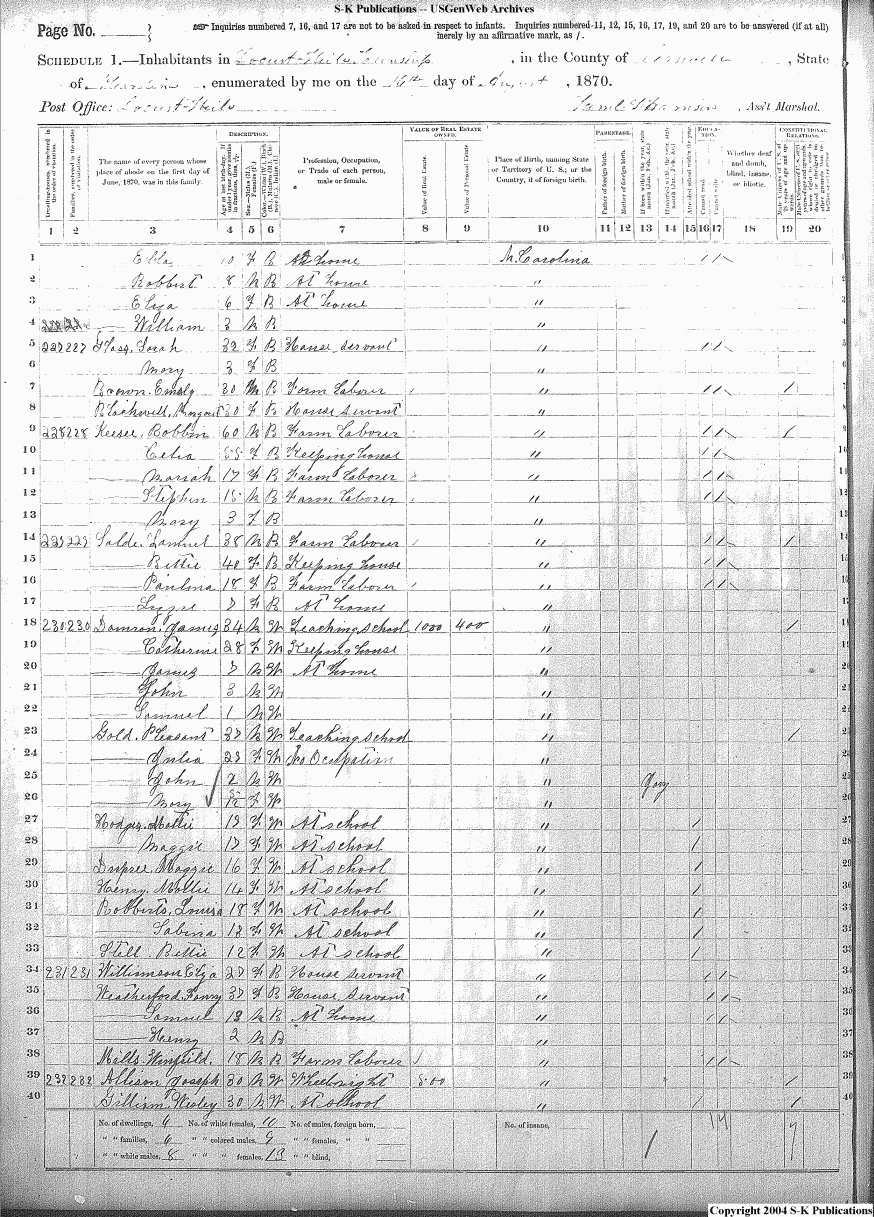 S-K Publications -- USGenWeb Archives
Page No.
Inquiries numbered 7, 16, and 17 are not to be asked in respect to infants. Inquiries numbered 11, 12, 15, 16, 17, 19, and 20 are to be answered (if at all)
merely by an affirmative mark, as /.
SCHEDULE 1.—Inhabitants in Locust-Hill Township, in the County of Caswell, State
of N. Carolina, enumerated by me on the 16th day of August, 1870.
Post Office: Locust-Hill , Ass't Marshal.
Dwelling-houses, numbered in the order of visitation.
Families, numbered in the order of visitation.
The name of every person whose place of abode on the first day of June, 1870, was in this family.
DESCRIPTION.
Age at last birth-day. If under 1 year, give months in fractions, thus, 3/12
Sex.—Males (M.), Females (F.)
Color.—White (W.), Black (B.), Mulatto (M.), Chinese (C.), Indian (I.)
Profession, Occupation, or Trade of each person, male or female.
VALUE OF REAL ESTATE OWNED.
Value of Real Estate.
Value of Personal Estate.
Place of Birth, naming State or Territory of U. S.; or the Country, if of foreign birth.
PARENTAGE.
Father of foreign birth.
Mother of foreign birth.
If born within the year, state month (Jan., Feb., &c.)
If married within the year, state month (Jan., Feb., &c.)
Attended school within the year.
EDUCATION.
Cannot read.
Cannot write.
Whether deaf and dumb, blind, insane, or idiotic.
CONSTITUTIONAL RELATIONS.
1 2 3 4 5 6 7 8 9 10 11 12 13 14 15 16 17 18 19 20
1 Ella 10 F B At home N. Carolina / / 1
2 Robbert 8 M B At house " 2
3 Eliza 6 F B At home " 3
4 —— William 3 M B " 4
5 227 227 Sarah 32 F B House servant " / / 5
6 —— Mary 3 F B " 6
7 Brown, 30 M B Farm Laborer " / / / 7
8 Blackwell, Margaret 30 F B House servant " 8
9 228 228 Keesee, Robbin 60 M B Farm Laborer " / / / 9
10 —— Celia 55 F B Keeping house " / / 10
11 —— Mariah 17 F B Farm Laborer " / / 11
12 —— Stephen 15 M B Farm Laborer " / / 12
13 —— Mary 3 F B " 13
14 229 229 Samuel 38 M B Farm Labourer " / / / 14
15 —— Bettie 40 F B Keeping house " / / 15
16 —— Paulina 18 F B Farm Laborer " / / 16
17 —— 7 F B At home " 17
18 230 230 James 34 M W Teaching school 1000 400 " / 18
19 —— Catherine 28 F W Keeping house " 19
20 —— James 7 M W At home " 20
21 —— John 3 M W " 21
22 —— Samuel 1 M W " 22
23 Gold, Pleasant 37 M W Teaching school " / 23
24 —— Julia 23 F W No Occupation " 24
25 —— John 2 M W " 25
26 —— Mary 5/12 F W " 26
27 Hodges, Mollie 19 F W At school " / 27
28 —— Maggie 17 F W At school " / 28
29 Dupree, Maggie 16 F W At school " / 29
30 Henry, Mollie 14 F W At school " / 30
31 Robberts, Louisa 18 F W At school " / 31
32 —— Sabina 13 F W At school " / 32
33 Still, Bettie 12 F W At school " / 33
34 231 231 Williamson Eliza 27 F B House servant " / / 34
35 Weatherford, Fanny 37 F B House Servant " / / 35
36 —— Samuel 13 M B At home " / / 36
37 —— Henry 2 M B " 37
38 Mills, Winfield 18 M B Farm Labourer " / / 38
39 232 232 Allison Joseph 30 M W Wheelwright 500 " / 39
40 Gilliam, Wesley 30 M W At school " / / 40
No. of dwellings, 6 No. of white females, 10 No. of males, foreign born, No. of insane,
" " families, 6 " " colored males, 9 " " females, " "
" " white males, 8 " " " females, 13 " " blind,
Copyright 2004 S-K Publications